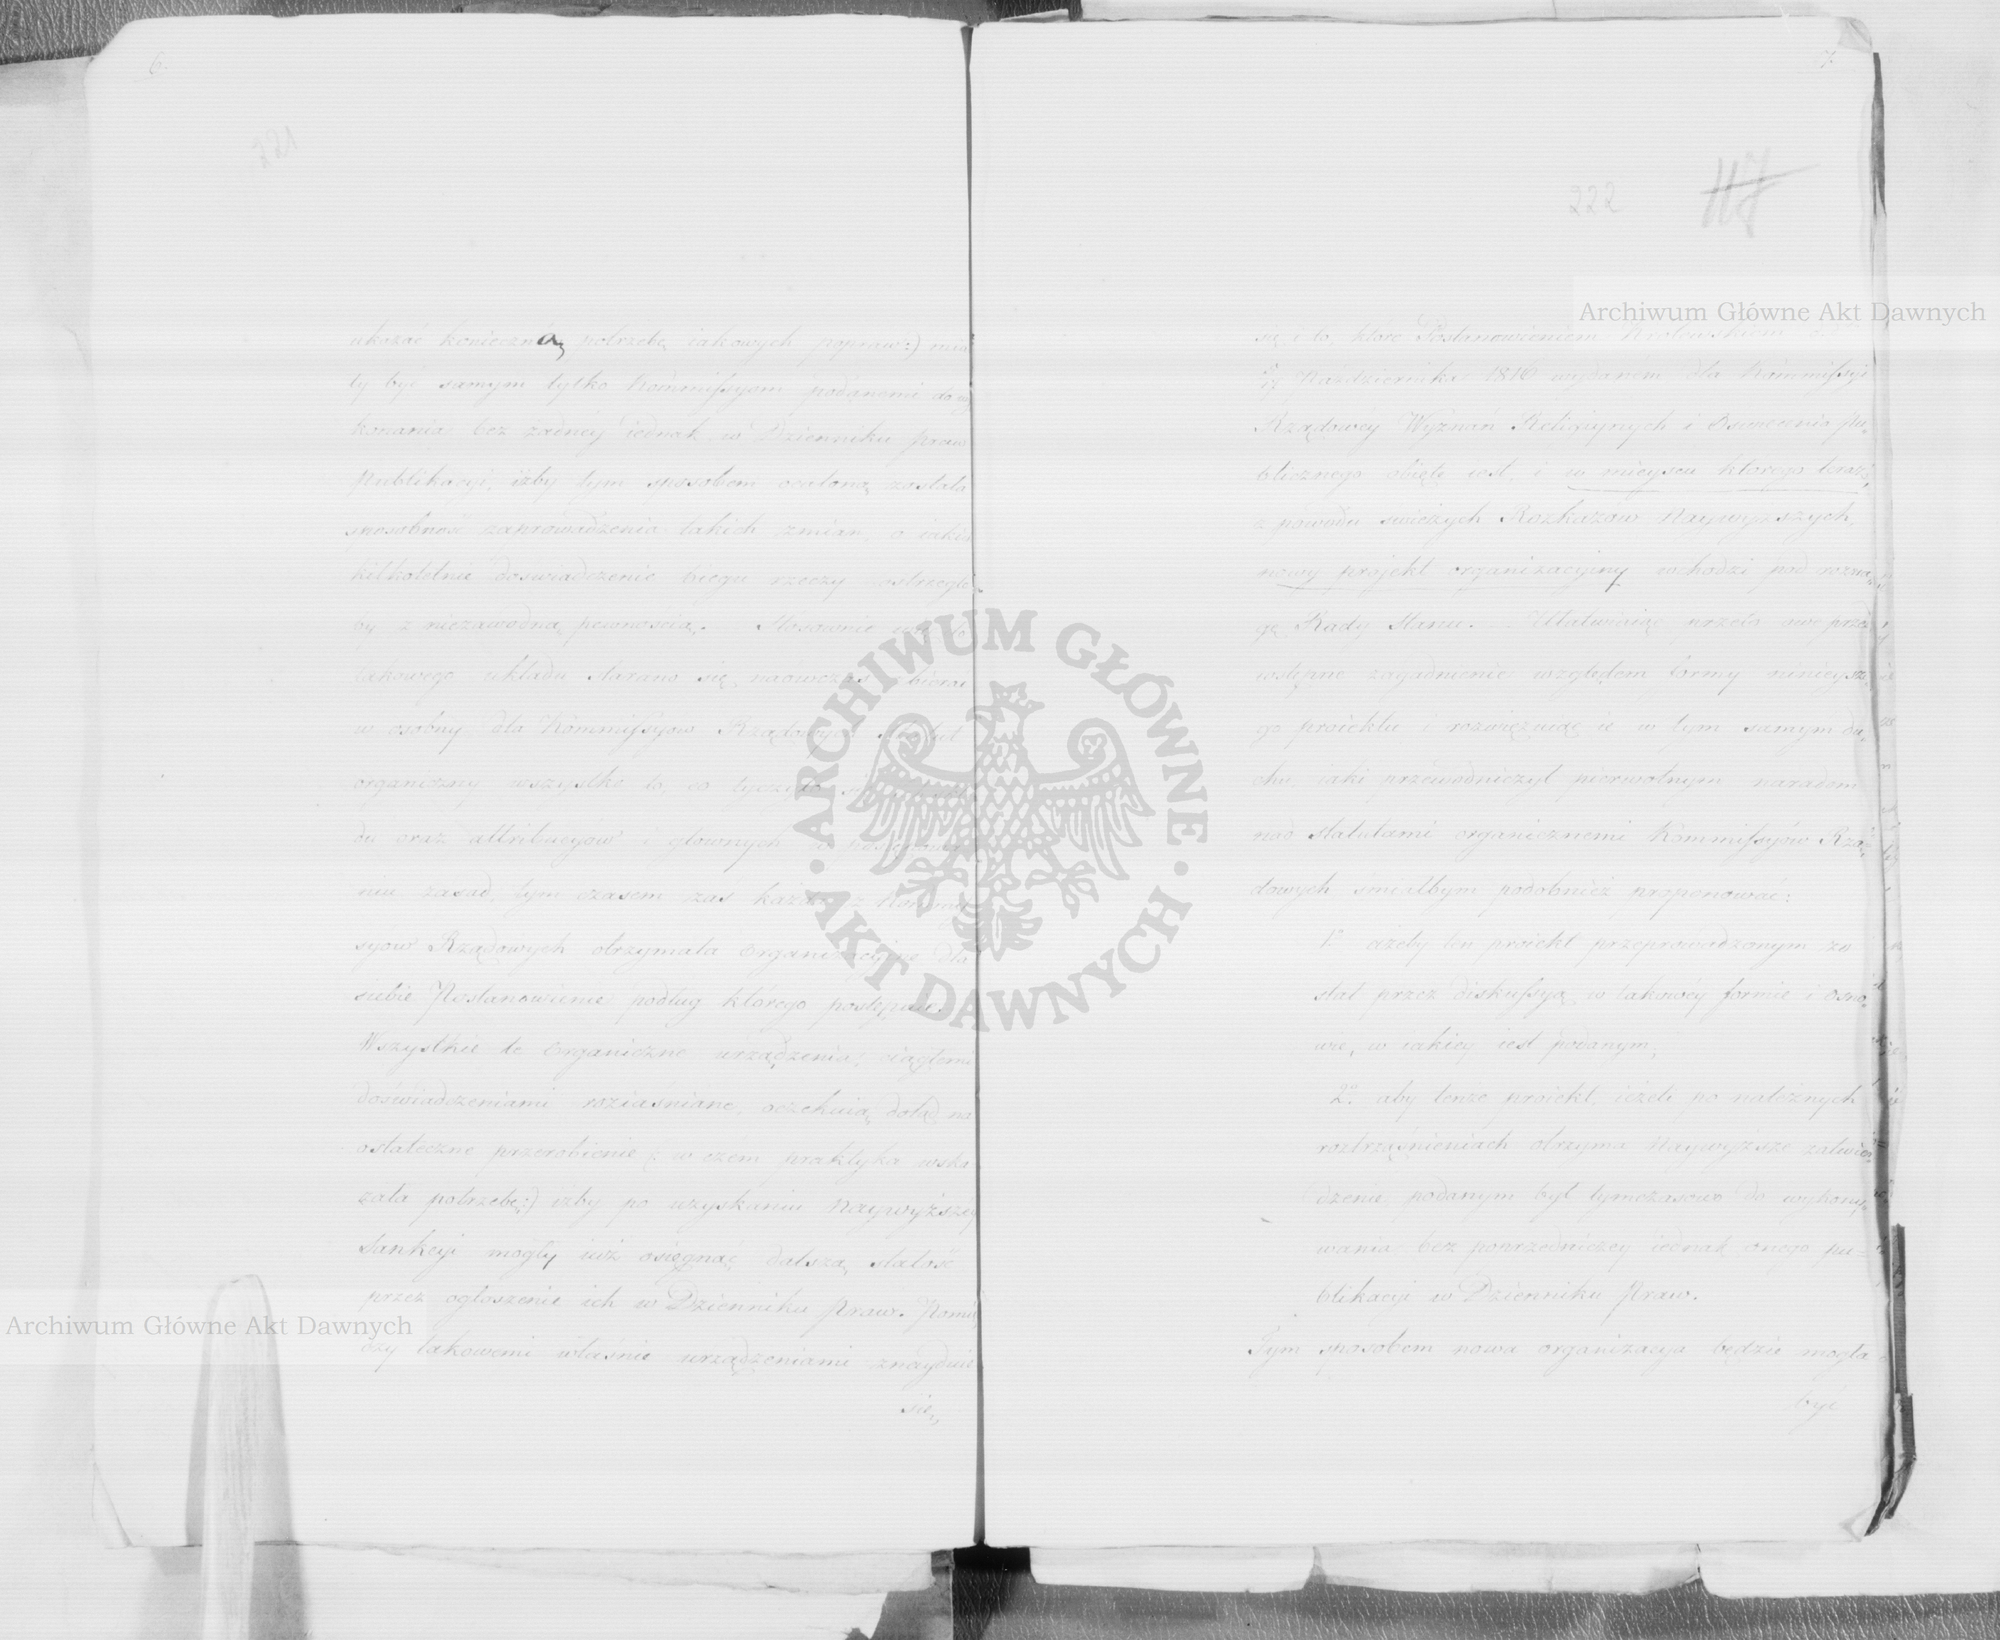 6.
221
ukazać konieczną potrzebę iakowych popraw:) mia
ły być samym tylko Kommissyom podanemi do wy
konania bez żadnéy iednak w Dzienniku praw
Publikacyi, iżby tym sposobem ocaloną została
sposobność zaprowadzenia takich zmian, o iakich
kilkoletnie doswiadczenie biegu rzeczy ostrzegło
by z niezawodną pewnością. Stosownie więc do
takowego układu starano się naówczas zbierać
w osobny dla Kommissyow Rządowych Statut
organiczny wszystko to, co tyczyło się
du oraz attribucyow i głownych
niu zasad, tym czasem zas każda z Kommis
syów Rządowych otrzymała organizacyjne dla
siebie Postanowienie podług którego postępuie.
Wszystkie te organiczne urządzenia, ciągłemi
doświadczeniami roziaśniane, oczekuią dotąd na
ostateczne przerobienie (: w czém praktyka wska
zała potrzebę:) iżby po uzyskaniu Naywyższéy
Sankcyi mogły iuż osięgnąć dalszą stałość
przez ogłoszenie ich w Dzienniku Praw. Pomię
dzy takowemi własnie urządzeniami znayduie
się,
7.
222
117
się i to, które Postanowieniem Królewskiem
Października 1816 wydaném dla Kommissyi
Rządowéy Wyznań Religiynych i Oswiecenia Pu=
blicznego obięte iest, i w mieyscu ktorego teraz,
z powodu swieżych Rozkazów Naywyższych,
nowy projekt organizacyjny wchodzi pod rozwa=
gę Rady Stanu. Ułatwiaiąc przeto owe przed
wstępne zagadnienie względem formy ninieysze
go proiektu i rozwięzuiąc ie w tym samym du=
chu, iaki przewodniczył pierwotnym naradom
nad statutami organicznemi Kommissyów Rzą=
dowych śmiałbym podobnież proponować:
1º ażeby ten proiekt przeprowadzonym zo
stał przez diskussyą w takowéy formie i osno=
wie, w iakiey iest podanym,
2º. aby tenże proiekt, ieżeli po należnych
roztrząśnieniach otrzyma Naywyższe zatwier=
dzenie podanym był tymczasowo do wykony=
wania bez poprzedniczey iednak onego pu=
blikacyi w Dzienniku Praw.
Tym sposobem nowa organizacya będzie mogła
być
Archiwum Główne Akt Dawnych
Archiwum Główne Akt Dawnych
ARCHIWUM GŁÓWNE · AKT DAWNYCH ·